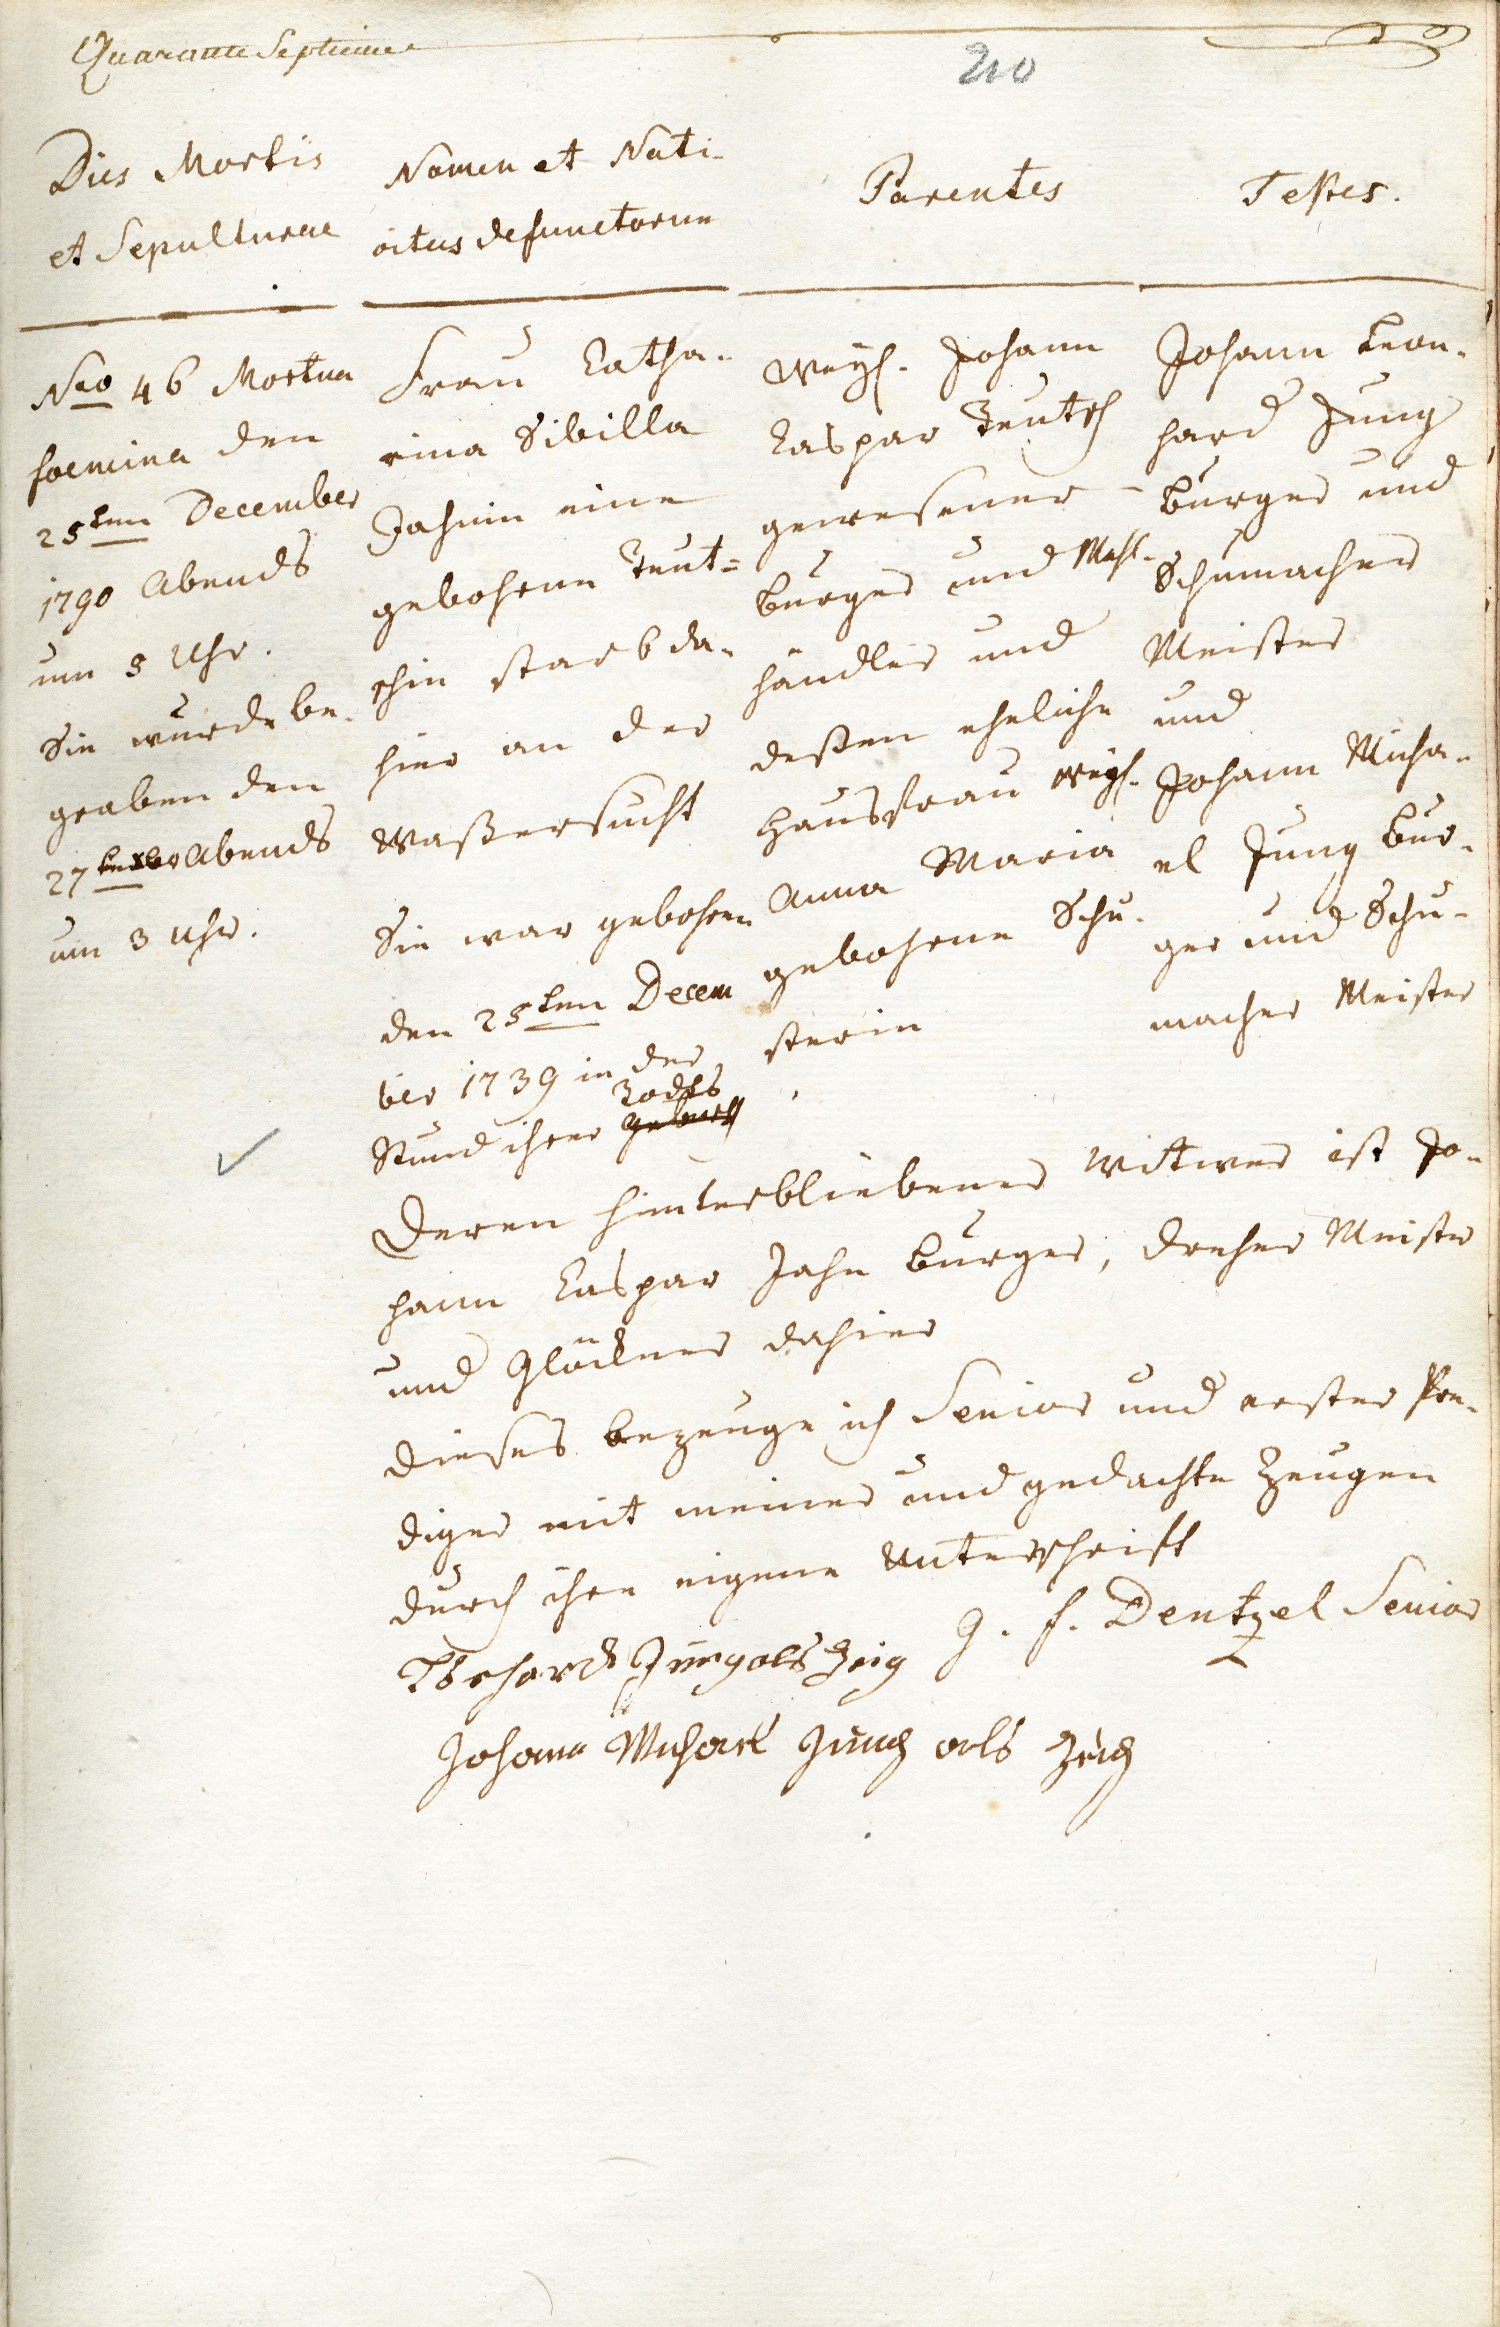 Quarante Septieme
210
Dies Mortis
et Sepulturae
Nomen et Nati-
vitas defunctorum
Parentes
Testes.
Nro 46 Mortua
foemina den
25ten December
1790 Abends
um 5 Uhr.
Sie wurde be-
graben den
27ten Abends
um 3 Uhr.
Frau Catha-
rina Sibilla
Jahnin eine
gebohrne Teut-
schin starb da-
hier an der
Waßersucht
Sie war gebohren
den 25ten Decem
ber 1739 in der
Todes
Stund ihrer
Weyl. Johann
Caspar Teutsch
gewesener
Burger und Mehl-
händler und
deßen eheliche
Hausfrau Weyl.
Anna Maria
gebohrne Schu-
sterin
Johann Leon-
hard Jung
Burger und
Schumacher
Meister
und
Johann Micha-
el Jung Bur-
ger und Schu-
macher Meister
Deren hinterbliebener Witwer ist Jo-
hann Caspar Jahn Burger, Dreher Meister
und Glöckner dahier
Dieses bezeuge ich Senior und erster Pre-
diger mit meiner und gedachte Zeugen
durch ihre eigene Unterschrift
G. F. Dentzel Senior
Jung als Zeig
Johann Michael Jung als Zeig